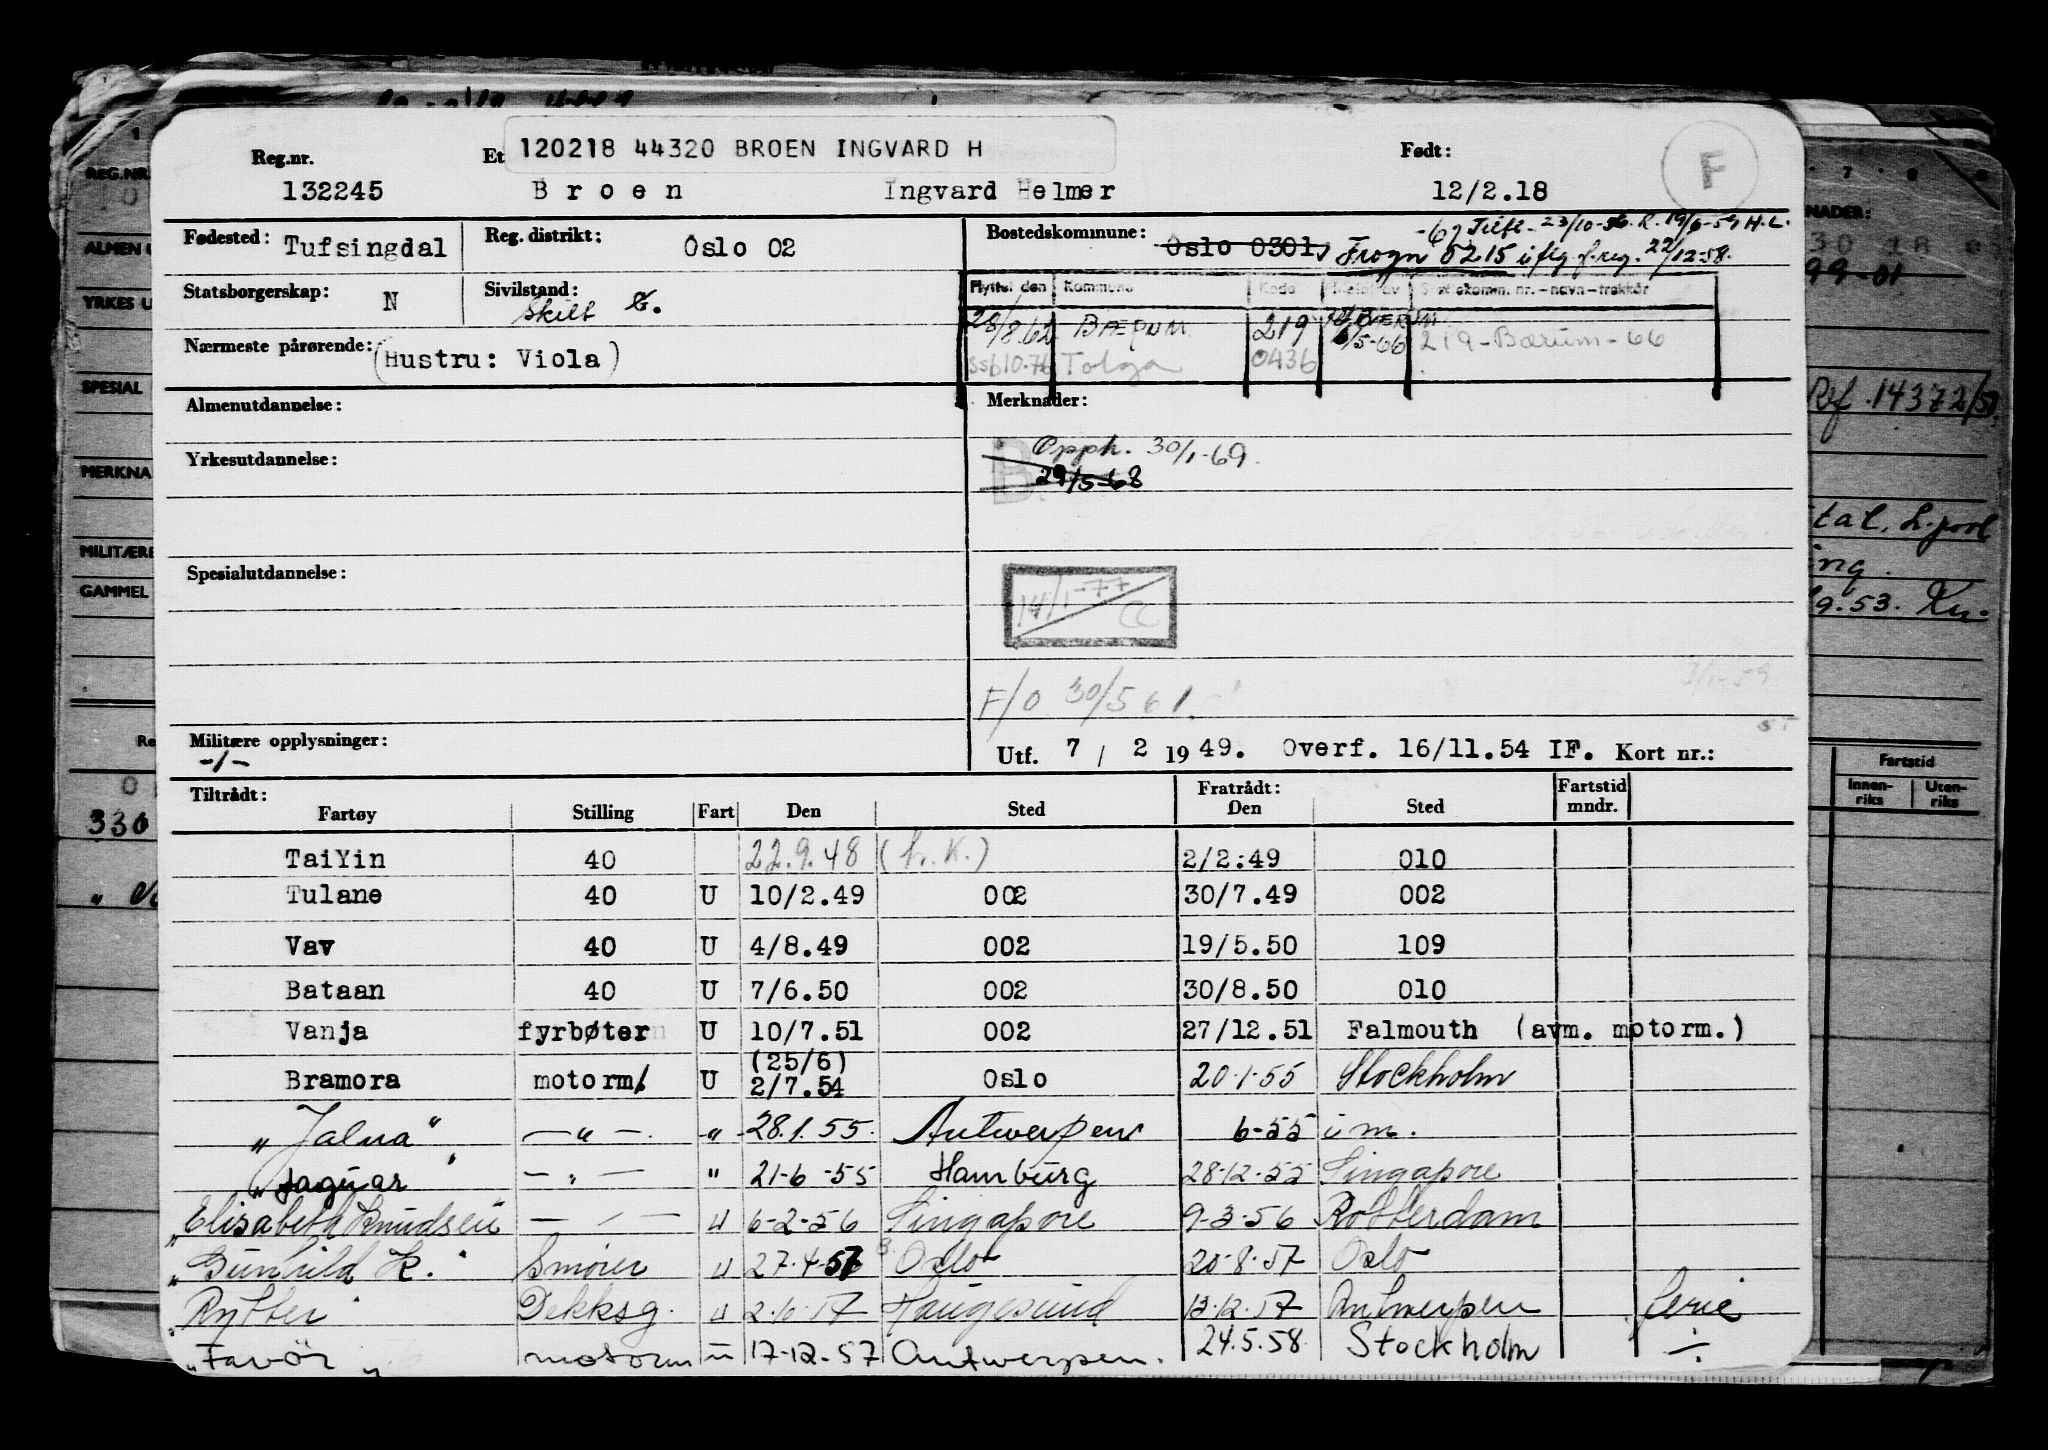 Reg.nr. Et 120218 44320 BROEN INGVARD H Født: F
132245 Broen Ingvard Helmer 12/2.18
Fødested: Tufsingdal Reg. distrikt: Oslo 02 Bostedskommune: Oslo 0301, Frogn 0215 iflg f.reg. 22/12-58.
-69 Tilfl. 23/10-56. R. 19/6-59 H.L.
Statsborgerskap: N Sivilstand: Skilt G.
Flyttet den Kommune Kode
28/8.62 BÆRUM 219 6/5-66 219-Bærum-66
Nærmeste pårørende: (Hustru: Viola) ssb10.76 Tolga 0436
Almenutdannelse: Merknader:
Opph. 30/1-69.
Yrkesutdannelse: B. 29/5-68
Spesialutdannelse:
14/1-77 CC
3/1-59
F/O 30/5 61.
Militære opplysninger: -/- Utf. 7 / 2 1949. Overf. 16/11.54 IF. Kort nr.:
Tiltrådt: Fratrådt: Fartstid
Fartøy Stilling Fart Den Sted Den Sted mndr.
TaiYin 40 22.9.48 (h.K.) 2/2:49 010
Tulane 40 U 10/2.49 002 30/7.49 002
Vav 40 U 4/8.49 002 19/5.50 109
Bataan 40 U 7/6.50 002 30/8.50 010
Vanja fyrbøter U 10/7.51 002 27/12.51 Falmouth (avm. motorm.)
(25/6)
Bramora motorm. U 2/7.54 Oslo 20-1-55 Stockholm
"Jalna" —"—. -"- 28.1.55. Antwerpen 6-55 um.
"Jaguar" —"— " 21-6-55 Hamburg 28-12-55 Singapore
"Elisabeth Knudsen — " — u 6-2-56 Singapore 9-3-56 Rotterdam
"Gunhild K." Smører u 27-4-57 Oslo 20-8-57 Oslo
"Rytter" Dekksg. u 2-10-57 Haugesund 13-12-57 Antwerpen ferie
"Favör" motorm u 17-12-57 Antwerpen. 24.5.58. Stockholm
REG.NR.
ALMEN U
YRKES U
SPESIAL
MERKNA
MILITÆRE
GAMMEL
330
NADER:
99-01
Ref. 14372/5
tal. L.pool
ing.
9.53. Kr.
Fartstid
Innen-
riks Uten-
riks